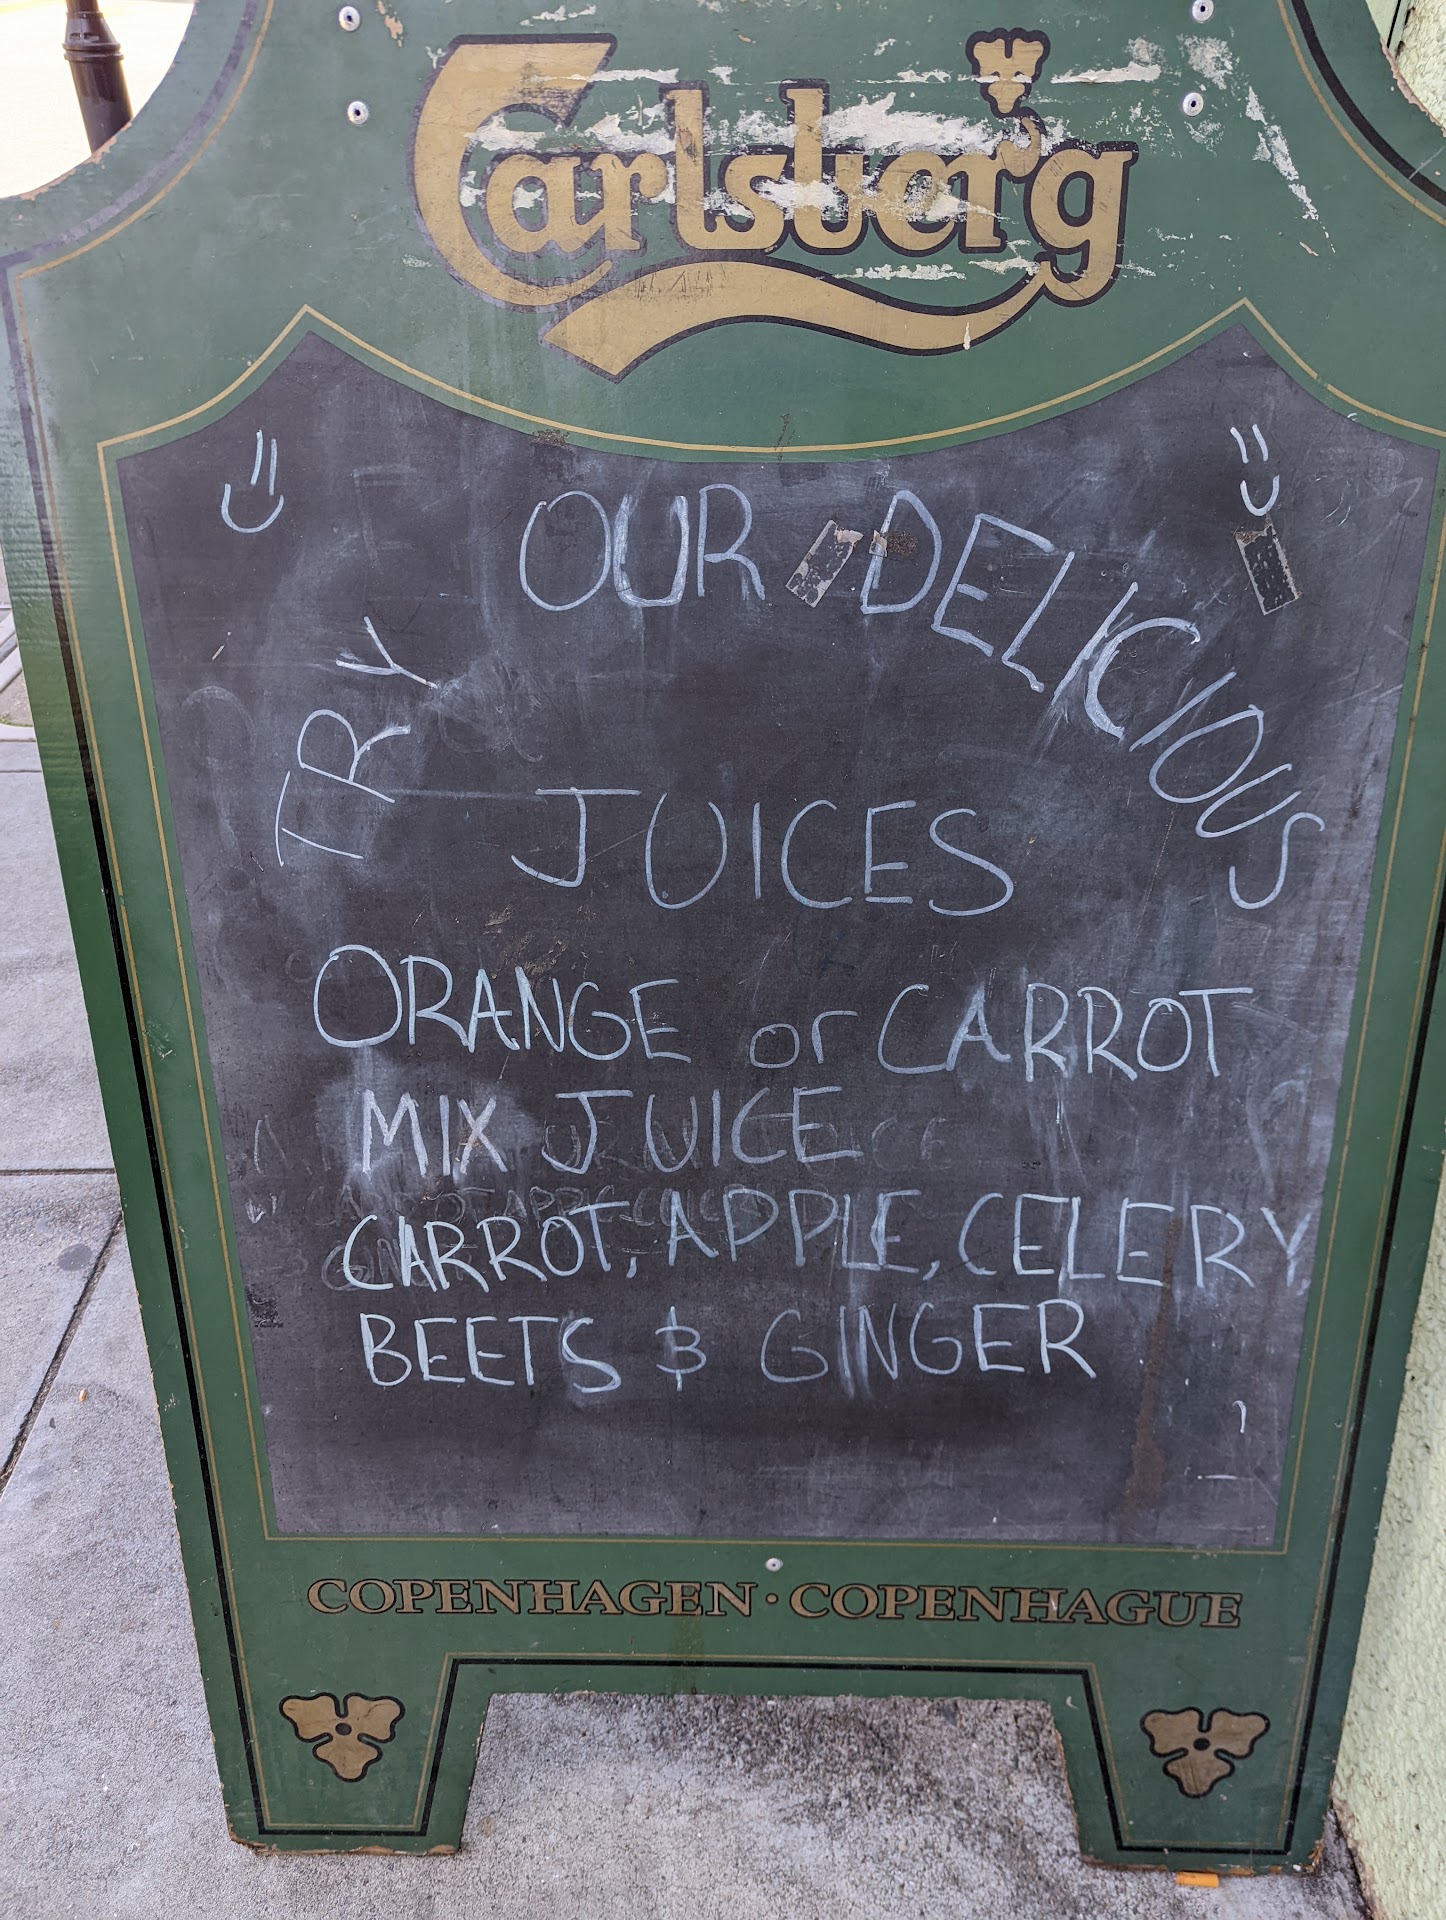 Carlsberg
TRY OUR DELICIOUS
JUICES
ORANGE or CARROT
MIX JUICE
CARROT, APPLE, CELERY,
BEETS & GINGER
COPENHAGEN · COPENHAGUE